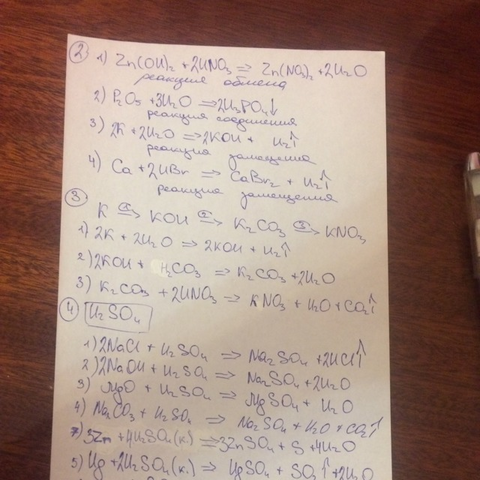 ② 1) Zn(OH)₂ + 2HNO₃ ⇒ Zn(NO₃)₂ + 2H₂O
реакция обмена
2) P₂O₅ + 3H₂O ⇒ 2H₃PO₄↓
реакция соединения
3) 2K + 2H₂O ⇒ 2KOH + H₂↑
реакция замещения
4) Ca + 2HBr ⇒ CaBr₂ + H₂↑
реакция замещения
③ K ⇒ KOH ⇒ K₂CO₃ ⇒ KNO₃
1) 2K + 2H₂O ⇒ 2KOH + H₂↑
2) 2KOH + H₂CO₃ ⇒ K₂CO₃ + 2H₂O
3) K₂CO₃ + 2HNO₃ ⇒ KNO₃ + H₂O + CO₂↑
④ H₂SO₄
1) 2NaCl + H₂SO₄ ⇒ Na₂SO₄ + 2HCl↑
2) 2NaOH + H₂SO₄ ⇒ Na₂SO₄ + 2H₂O
3) MgO + H₂SO₄ ⇒ MgSO₄ + H₂O
4) Na₂CO₃ + H₂SO₄ ⇒ Na₂SO₄ + H₂O + CO₂↑
7) 3Zn + 4H₂SO₄(к) ⇒ 3ZnSO₄ + S + 4H₂O
5) Hg + 2H₂SO₄(к.) ⇒ HgSO₄ + SO₂↑ + 2H₂O